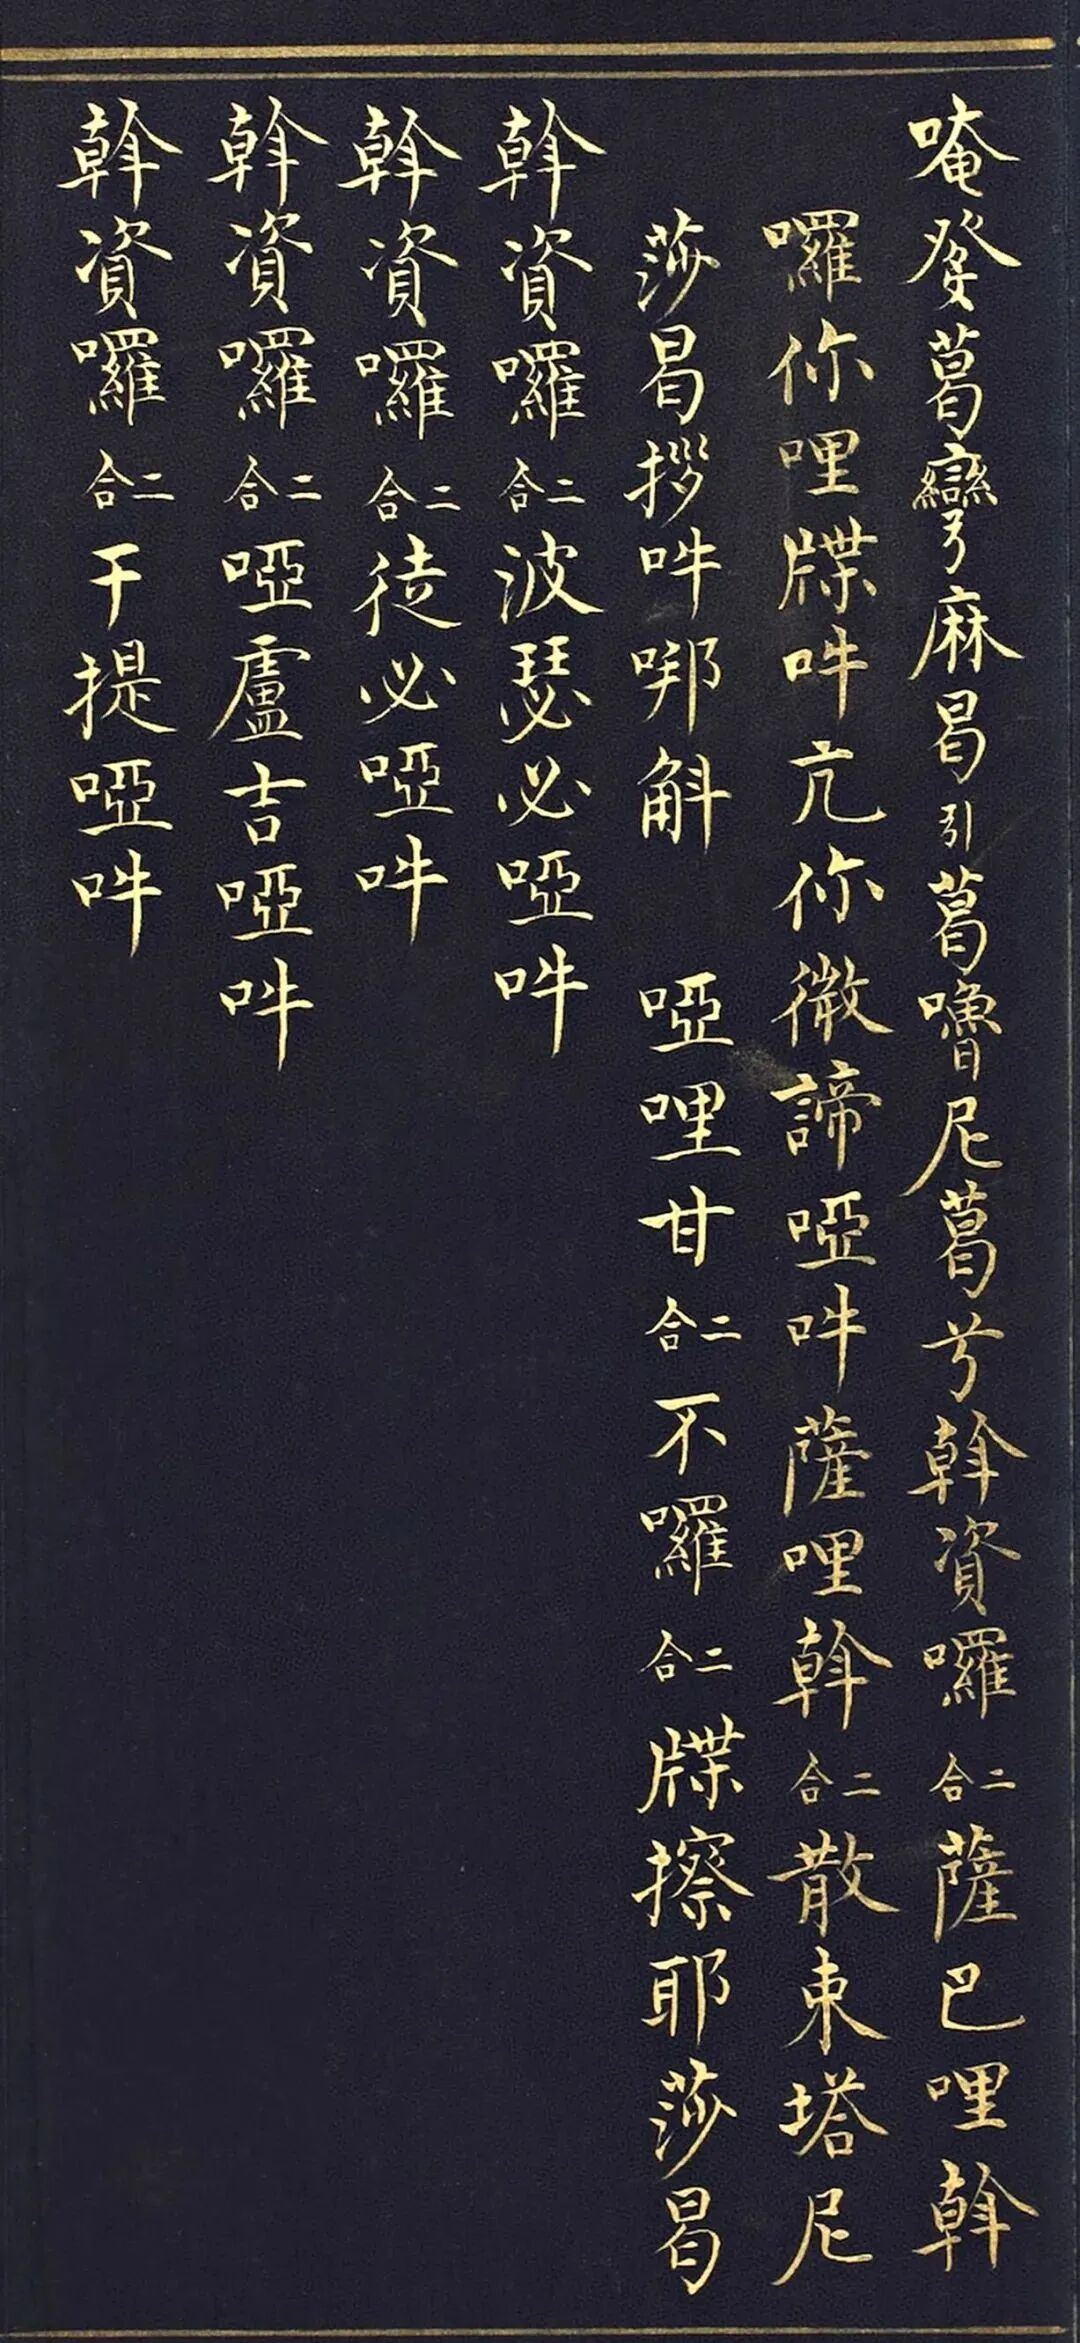 唵癹葛彎麻曷引葛嚕尼葛兮斡資囉二合薩巴哩斡
囉你哩牒吽亢你徵諦啞吽薩哩斡二合散東塔尼
莎曷拶吽哪斛 啞哩甘二合不囉二合牒擦耶莎曷
斡資囉二合波瑟必啞吽
斡資囉二合徒必啞吽
斡資囉二合啞盧吉啞吽
斡資囉二合干提啞吽